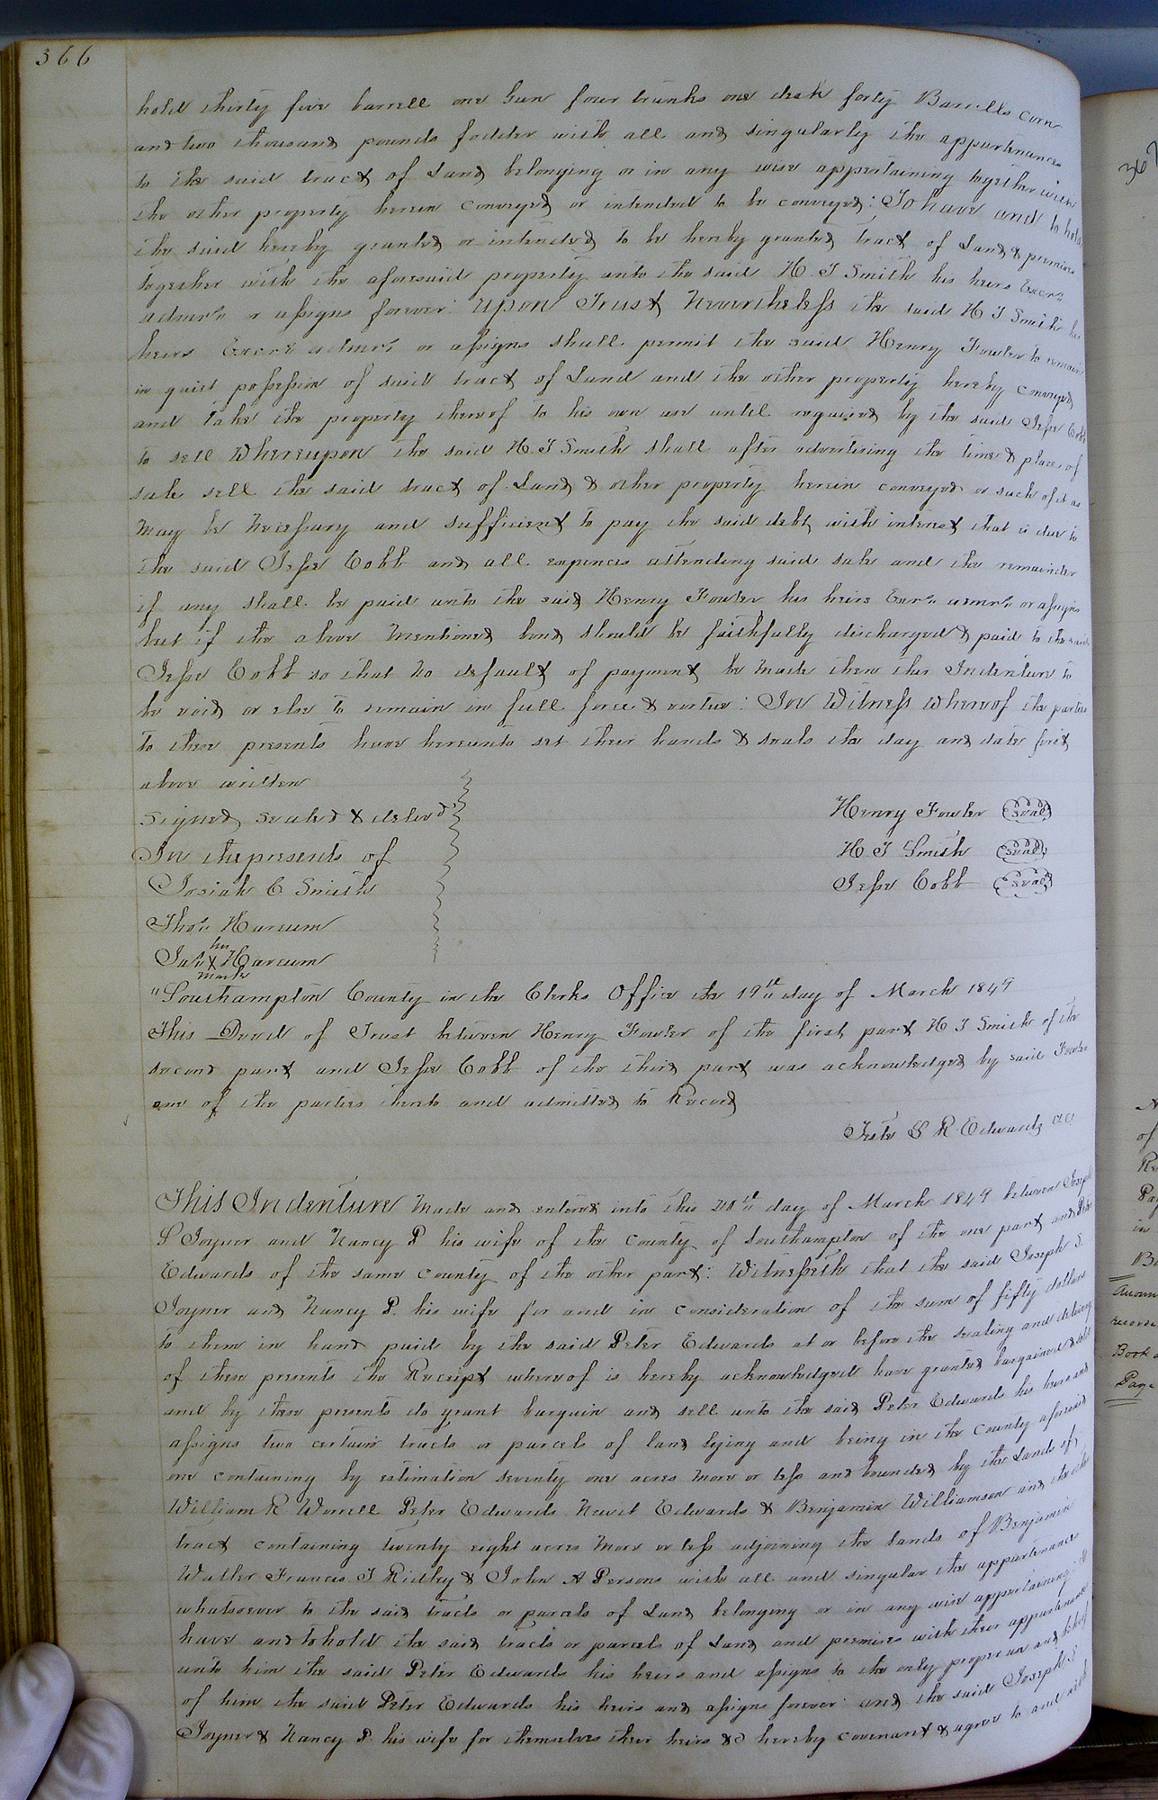 366
hold thirty five barrell one Gun four trunks one desk forty Barrells corn
and two thousand pounds fodder with all and singularly the appurtenances
to the said tract of Land belonging or in any wise appertaining together with
the other property herein conveyed or intended to be conveyed: To have and to hold
the said hereby granted or intended to be hereby granted tract of Land & premises
together with the aforesaid property unto the said H. T Smith his heirs Excrs
admrs or assigns forever: Upon Trust Nevertheless the said H T Smith his
heirs Excrs admrs or assigns shall permit the said Henry Fowler to remain
in quiet possession of said tract of Land and the other property hereby conveyed
and take the property thereof to his own use until required by the said Jesse Cobb
to sell Whereupon the said H. T Smith shall after advertising the time & place of
sale sell the said tract of Land & other property herein conveyed or such of it as
may be Necessary and sufficient to pay the said debt with interest that is due to
the said Jesse Cobb and all expences attending said sale and the remainder
if any shall be paid unto the said Henry Fowler his heirs Exrs admrs or assigns
but if the above mentioned bond should be faithfully discharged & paid to the said
Jesse Cobb so that no default of payment be made then this Indenture to
be void or else to remain in full force & virtue: In Witness Whereof the parties
to these presents have hereunto set their hands & seals the day and date first
above written
Signed Sealed & deliverd
In the presents of
Josiah C Smith
Thos Harcum
Jas his X mark Harcum
Henry Fowler (Seal)
H T Smith (Seal)
Jesse Cobb (Seal)
"Southampton County in the Clerks Office the 19th day of March 1849
This Deed of Trust between Henry Fowler of the first part H T Smith of the
second part and Jesse Cobb of the third part was acknowledged by said Fowler
one of the parties thereto and admitted to Record
Teste L R Edwards CC
This Indenture Made and entered into this 20th day of March 1849 between Joseph
S Joyner and Nancy P his wife of the County of Southampton of the one part and Peter
Edwards of the same county of the other part: Witnesseth that the said Joseph S.
Joyner and Nancy P. his wife for and in consideration of the sum of fifty dollars
to them in hand paid by the said Peter Edwards at or before the sealing and delivery
of these presents the Receipt whereof is hereby acknowledged have granted bargained & sold
and by these presents do grant bargain and sell unto the said Peter Edwards his heirs and
assigns two certain tracts or parcels of land lying and being in the County aforesaid
one containing by estimation seventy one acres more or less and bounded by the Lands of
William R Worrell Peter Edwards Newit Edwards & Benjamin Williamson and the other
tract containing twenty eight acres more or less adjoining the lands of Benjamin
Waller Francis T Ridley & John A Persons with all and singular the appurtenances
whatsoever to the said tracts or parcels of Land belonging or in any wise appertaining: To
have and to hold the said tracts or parcels of Land and premises with their appurtenances
unto him the said Peter Edwards his heirs and assigns to the only proper use and behoof
of him the said Peter Edwards his heirs and assigns forever: and the said Joseph S
Joyner & Nancy P. his wife for themselves their heirs &c hereby covenant & agree to and with
367
of
in
Book
Page